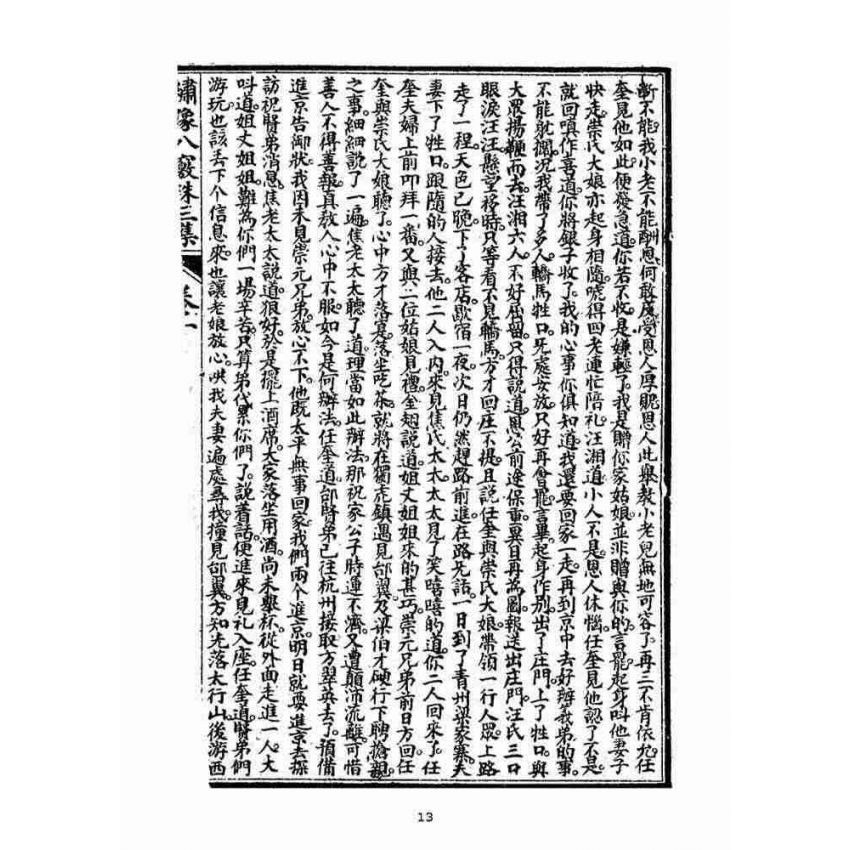 斷不能我小老不能酬恩何敢反受恩人厚賜恩人此舉教小老兒無地可容了再三不肯依允任
奎見他如此便發急道你若不收是嫌輕了我是贈你家姑娘並非贈與你的言罷起身叫他妻子
快走崇氏大娘亦起身相隨唬得四老連忙陪礼汪湘道小人不是恩人休惱任奎見他認了不是
就回嗔作喜道你將銀子收了我的心事你俱知道我還要回家一走再到京中去好辦我弟的事
不能躭擱况我帶了多人轎馬牲口旡處安放只好再會罷言畢起身作別出了庄門上了牲口與
大眾揚鞭而去汪湘六人不好屈留只得說道恩公前途保重異日再為圖報送出庄門汪氏三口
眼淚汪汪懸望移時只等看不見轎馬方才回庄不提且說任奎與崇氏大娘帶領一行人眾上路
走了一程天色已晚下了客店歇宿一夜次日仍然趕路前進在路旡話一日到了青州梁家寨夫
妻下了牲口跟隨的人接去他二人入內來見焦氏太太太太見了笑嘻嘻的道你二人回來了任
奎夫婦上前叩拜一番又與二位姑娘見禮金翅說道姐丈姐姐來的甚巧崇元兄弟前日方回任
奎與崇氏大娘聽了心中方才落寔落坐吃茶就將在獨虎鎮遇見邰翼及梁伯才硬行下聘搶親
之事細細說了一遍焦老太太聽了道理當如此辦法那祝家公子時運不濟又遭顛沛流離可惜
善人不得善報真教人心中不服如今是何辦法任奎道邰賢弟已往杭州接取方翠英去了預備
進京告御狀我因未見崇元兄弟放心不下他既太平無事回家我們兩个進京明日就要進京去探
訪祝賢弟消息焦老太太說道狠好於是擺上酒席大家落坐用酒尚未舉杯從外面走進一人大
呌道姐丈姐姐難為你們一場辛苦只算弟代累你們了說着話便進來見礼入座任奎道賢弟們
游玩也該丢下个信息來也讓老娘放心哄我夫妻遍處尋找撞見邰翼方知先落太行山後游西
繡像八竅珠三集
卷二
13